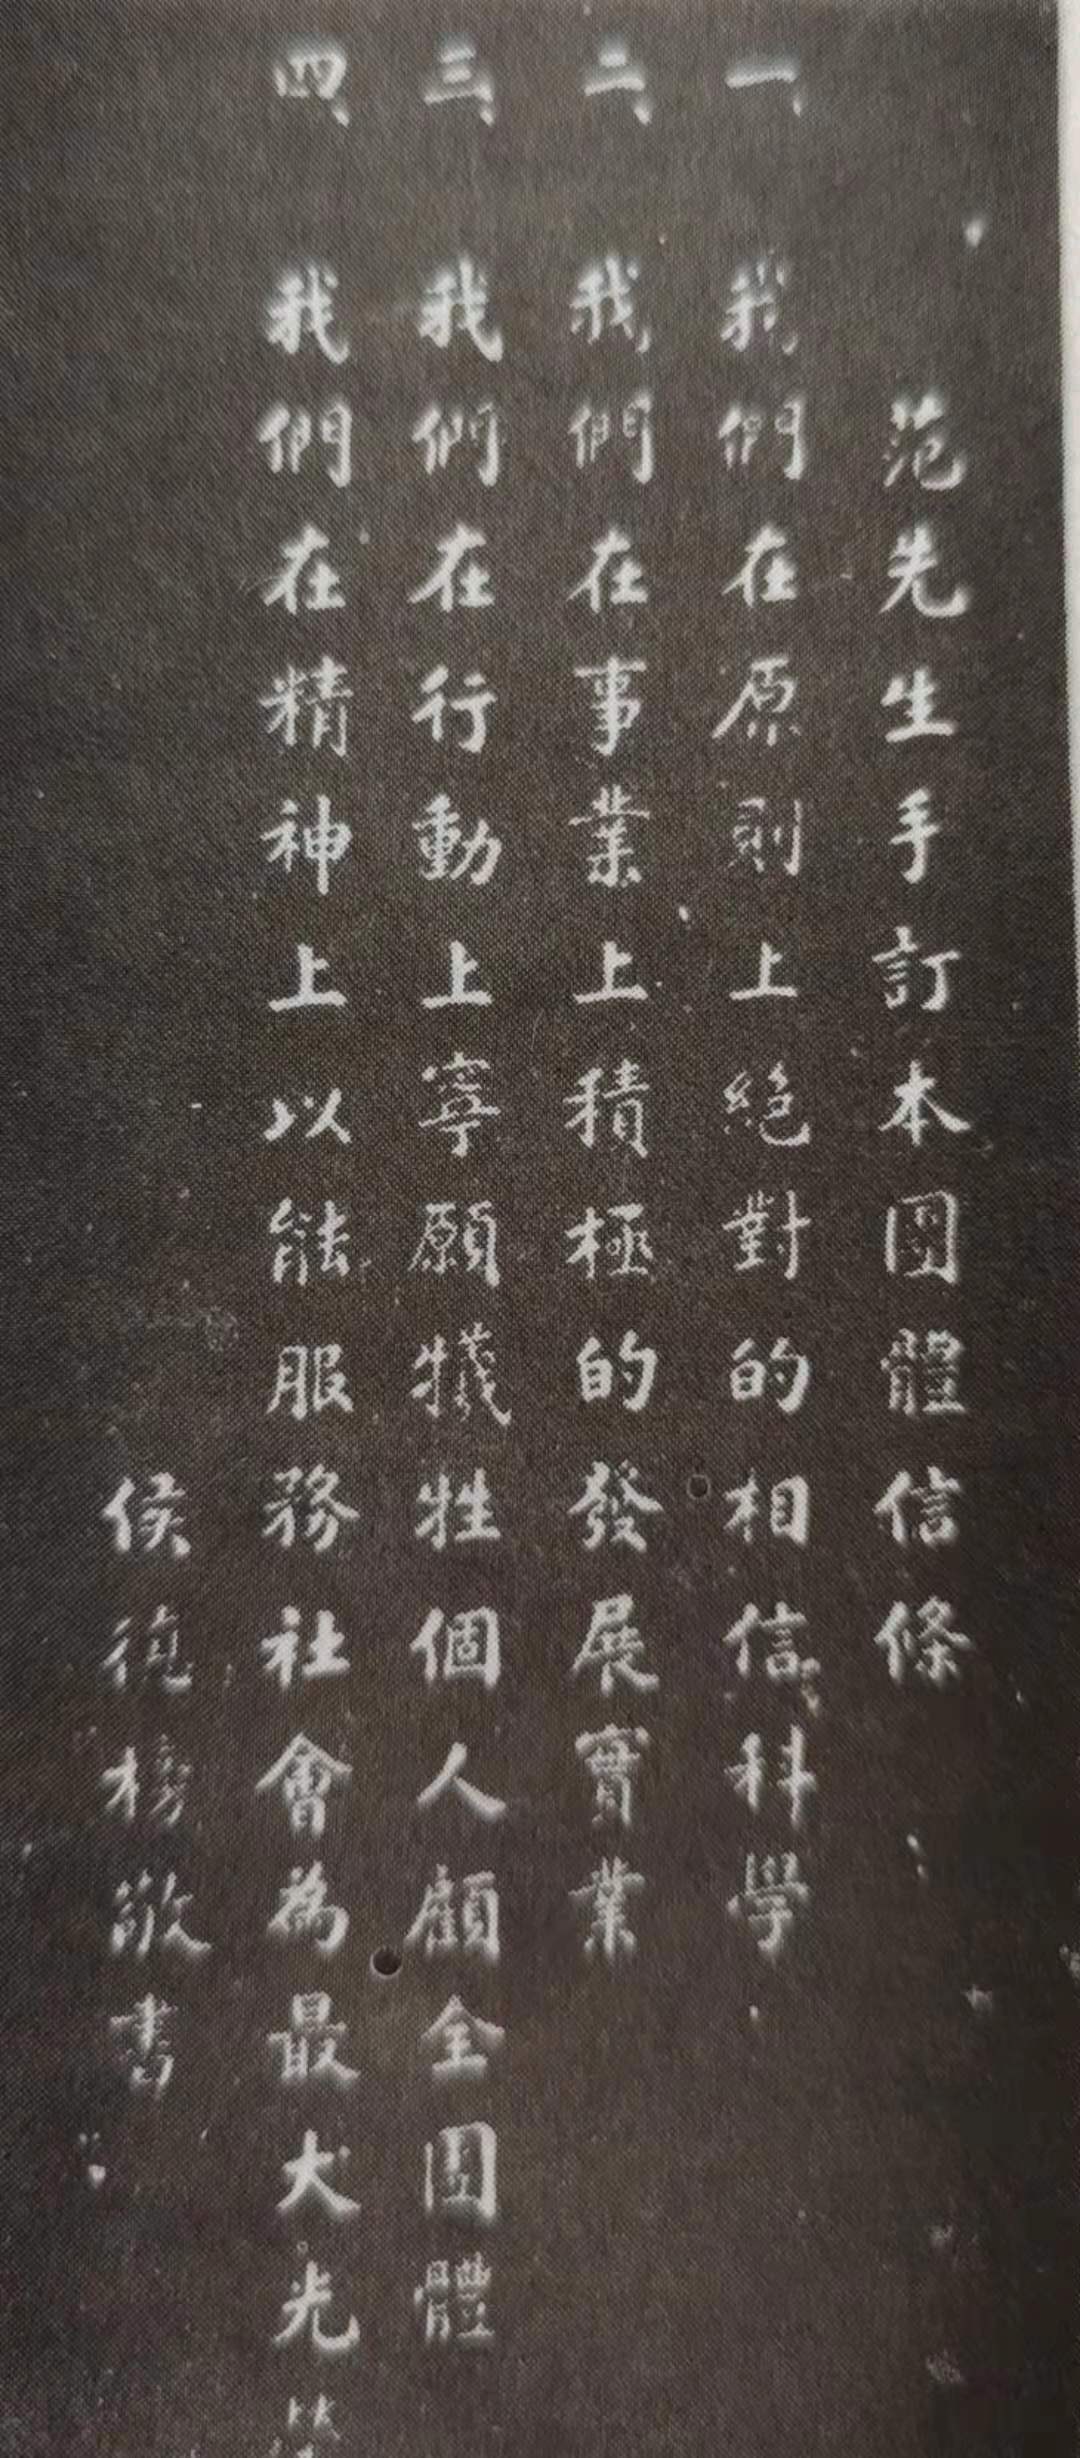 范先生手訂本團體信條
一、我們在原則上絕對的相信科學
二、我們在事業上積極的發展實業
三、我們在行動上寧願犧牲個人顧全團體
四、我們在精神上以能服務社會為最大光
侯德榜敬書